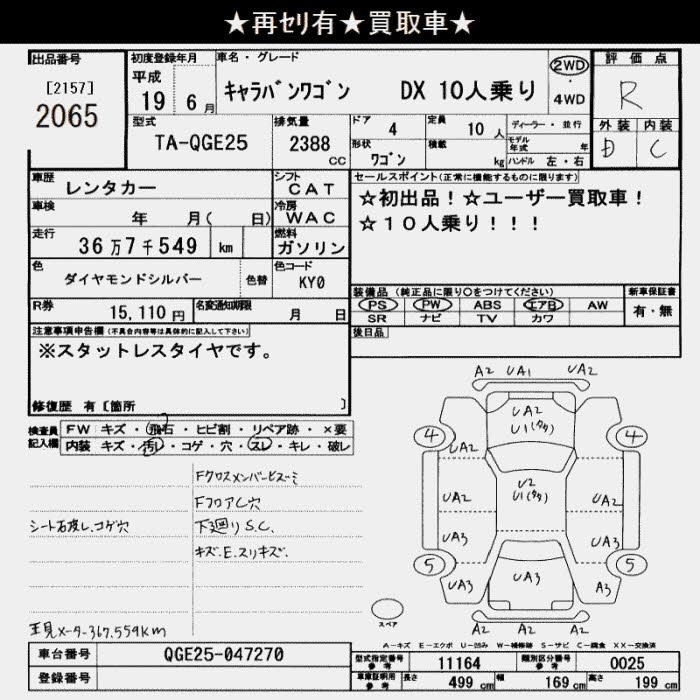 ★再セリ有★買取車★
出品番号
[2157]
2065
初度登録年月
平成
19 6月
車名・グレード
キャラバンワゴン DX 10人乗り
2WD
・
4WD
評価点
R
外装 内装
D C
型式
TA-QGE25
排気量
2388
CC
ドア 4
定員 10人
ディーラー・並行
形状 ワゴン
積載 kg
モデル年式 年
ハンドル 左・右
車歴 レンタカー
シフト CAT
車検 年 月( 日)
冷房 WAC
走行 36万7千549 km
燃料 ガソリン
色 ダイヤモンドシルバー
色替
色コード KY0
R券 15,110円
名変通知期限 月 日
セールスポイント(正常に機能するものに限ります)
☆初出品！☆ユーザー買取車！
☆10人乗り！！！
装備品(純正品に限り○をつけてください)
PS PW ABS エアB AW
SR ナビ TV カワ
新車保証書
有・無
後日品
注意事項申告欄(不具合内容等は具体的に記入して下さい)
※スタットレスタイヤです。
修復歴 有〔箇所 〕
検査員記入欄
FW キズ・飛石・ヒビ割・リペア跡・×要
内装 キズ・汚レ・コゲ・穴・スレ・キレ・破レ
Fクロスメンバーヒズミ
FフロアC穴
シート石皮レ、コゲ穴
下廻りS.C.
キズ.E.スリキズ.
現メーター367,559km
A2 UA1 UA2
UA2
U1(タタ)
4 4
UA2
U2
U1(タタ)
UA2 UA2
UA3 UA3
5 5
UA3 UA3 A3
A2 A2 A2
スペア
A-キズ E-エクボ U-凹み W-補修跡 S-サビ C-腐食 XX-交換済
車台番号 QGE25-047270
登録番号
型式指定番号 参考 11164
類別区分番号 参考 0025
車庫証明用 参考
長さ 499cm 幅 169cm 高さ 199cm